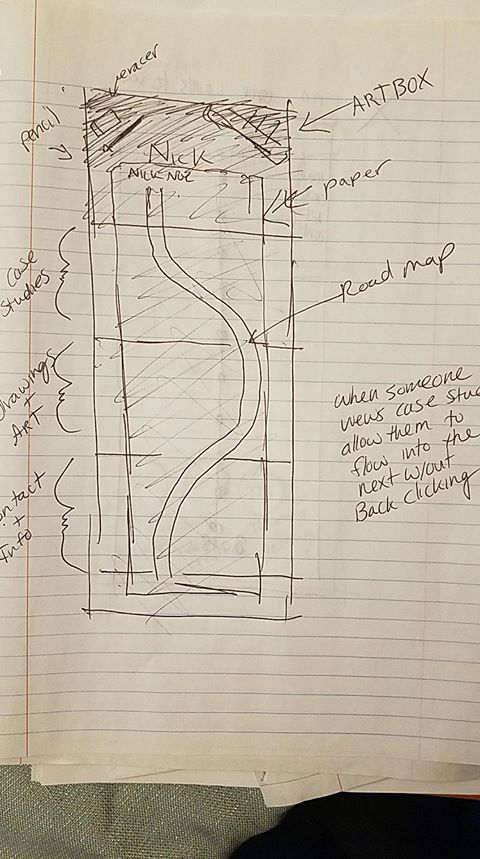 eracer
ARTBOX
pencil
Nick
paper
Case
Studies
Road map
Drawings
+
ART
when someone
views case stud
allow them to
flow into the
next w/out
Back clicking
ontact
+
Info